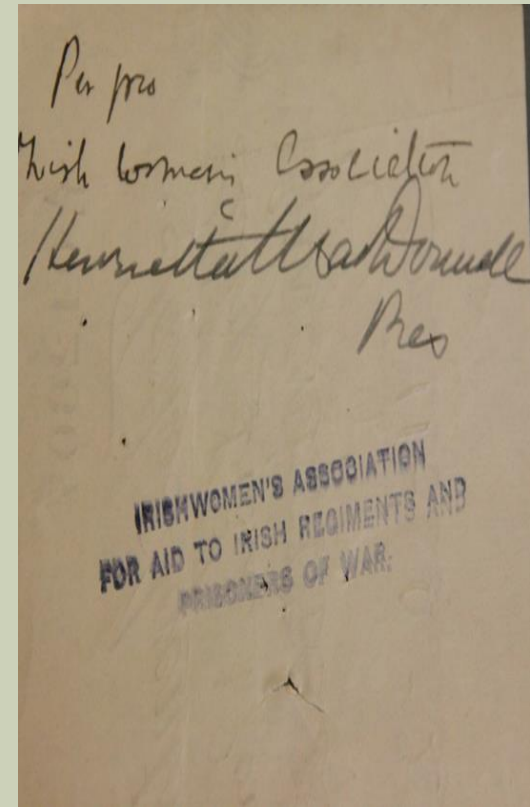 Per pro
Irish Women's Association
Henrietta MacDonnell
Pres
IRISHWOMEN'S ASSOCIATION
FOR AID TO IRISH REGIMENTS AND
PRISONERS OF WAR.